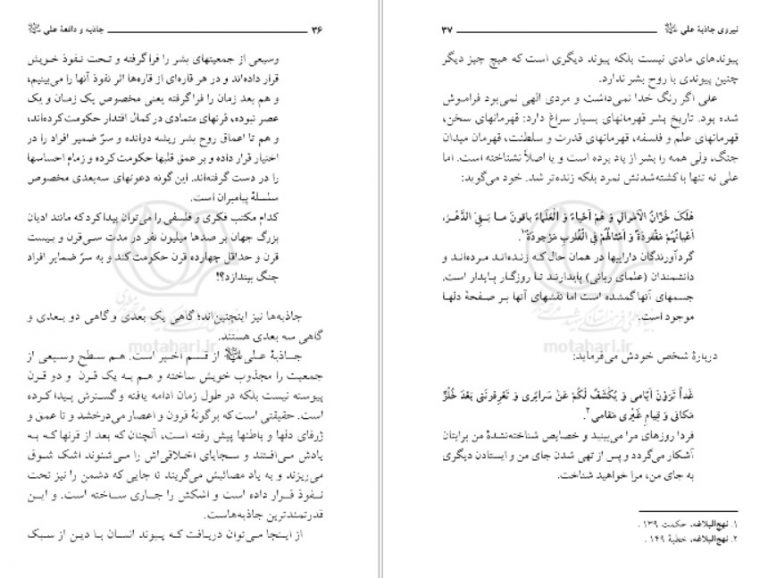 ۳۶ جاذبه و دافعهٔ علی
وسیعی از جمعیتهای بشر را فراگرفته و تحت نفوذ خویش
قرار داده‌اند و در هر قاره‌ای از قاره‌ها اثر نفوذ آنها را می‌بینیم،
و هم بعد زمان را فراگرفته یعنی مخصوص یک زمان و یک
عصر نبوده، قرنهای متمادی در کمال اقتدار حکومت کرده‌اند،
و هم تا اعماق روح بشر ریشه دوانده و سرّ ضمیر افراد را در
اختیار قرار داده و بر عمق قلبها حکومت کرده و زمام احساسها
را در دست گرفته‌اند. این گونه دعوتهای سه‌بعدی مخصوص
سلسلهٔ پیامبران است.
کدام مکتب فکری و فلسفی را می‌توان پیدا کرد که مانند ادیان
بزرگ جهان بر صدها میلیون نفر در مدت سی قرن و بیست
قرن و حداقل چهارده قرن حکومت کند و به سرّ ضمایر افراد
چنگ بیندازد؟!
جاذبه‌ها نیز اینچنین‌اند؛ گاهی یک بعدی و گاهی دو بعدی و
گاهی سه بعدی هستند.
جاذبهٔ علی از قسم اخیر است. هم سطح وسیعی از
جمعیت را مجذوب خویش ساخته و هم به یک قرن و دو قرن
پیوسته نیست بلکه در طول زمان ادامه یافته و گسترش پیدا کرده
است. حقیقتی است که برگونهٔ قرون و اعصار می‌درخشد و تا عمق و
ژرفای دلها و باطنها پیش رفته است، آنچنان که بعد از قرنها که به
یادش می‌افتند و سجایای اخلاقی‌اش را می‌شنوند اشک شوق
می‌ریزند و به یاد مصائبش می‌گریند تا جایی که دشمن را نیز تحت
نفوذ قرار داده است و اشکش را جاری ساخته است. و این
قدرتمندترین جاذبه‌هاست.
از اینجا می‌توان دریافت که پیوند انسان با دین از سبک
motahari.ir
نیروی جاذبهٔ علی ۳۷
پیوندهای مادی نیست بلکه پیوند دیگری است که هیچ چیز دیگر
چنین پیوندی با روح بشر ندارد.
علی اگر رنگ خدا نمی‌داشت و مردی الهی نمی‌بود فراموش
شده بود. تاریخ بشر قهرمانهای بسیار سراغ دارد: قهرمانهای سخن،
قهرمانهای علم و فلسفه، قهرمانهای قدرت و سلطنت، قهرمان میدان
جنگ، ولی همه را بشر از یاد برده است و یا اصلاً نشناخته است. اما
علی نه تنها با کشته‌شدنش نمرد بلکه زنده‌تر شد. خود می‌گوید:
هَلَکَ خُزّانُ الْاَمْوالِ وَ هُمْ اَحْیاءٌ وَ الْعُلَماءُ باقونَ ما بَقِیَ الدَّهْرُ،
اَعْیانُهُمْ مَفْقودَةٌ وَ اَمْثالُهُمْ فِی الْقُلوبِ مَوْجودَةٌ۱.
گردآورندگان داراییها در همان حال که زنده‌اند مرده‌اند و
دانشمندان (علمای ربانی) پایدارند تا روزگار پایدار است.
جسمهای آنها گمشده است اما نقشهای آنها بر صفحهٔ دلها
موجود است.
دربارهٔ شخص خودش می‌فرماید:
غَداً تَرَوْنَ اَیّامی وَ یُکْشَفُ لَکُمْ عَنْ سَرائِری وَ تَعْرِفونَنی بَعْدَ خُلُوِّ
مَکانی وَ قِیامِ غَیْری مَقامی۲.
فردا روزهای مرا می‌بینید و خصایص شناخته‌نشدهٔ من برایتان
آشکار می‌گردد و پس از تهی شدن جای من و ایستادن دیگری
به جای من، مرا خواهید شناخت.
۱. نهج‌البلاغه، حکمت ۱۳۹.
۲. نهج‌البلاغه، خطبهٔ ۱۴۹.
motahari.ir